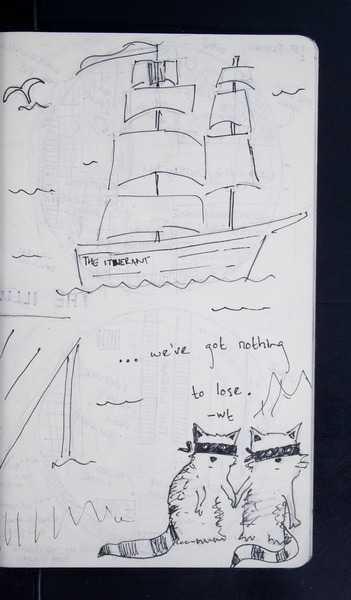 THE ITINERANT
... we've got nothing
to lose.
-wt